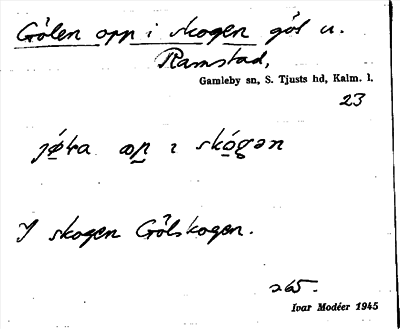 Gölen opp i skogen göl u.
Ramstad,
Gamleby sn, S. Tjusts hd, Kalm. l.
23
jǿ̣ɫa ɷp ɩ skógən
I skogen Gölskogen.
265.
Ivar Modéer 1945